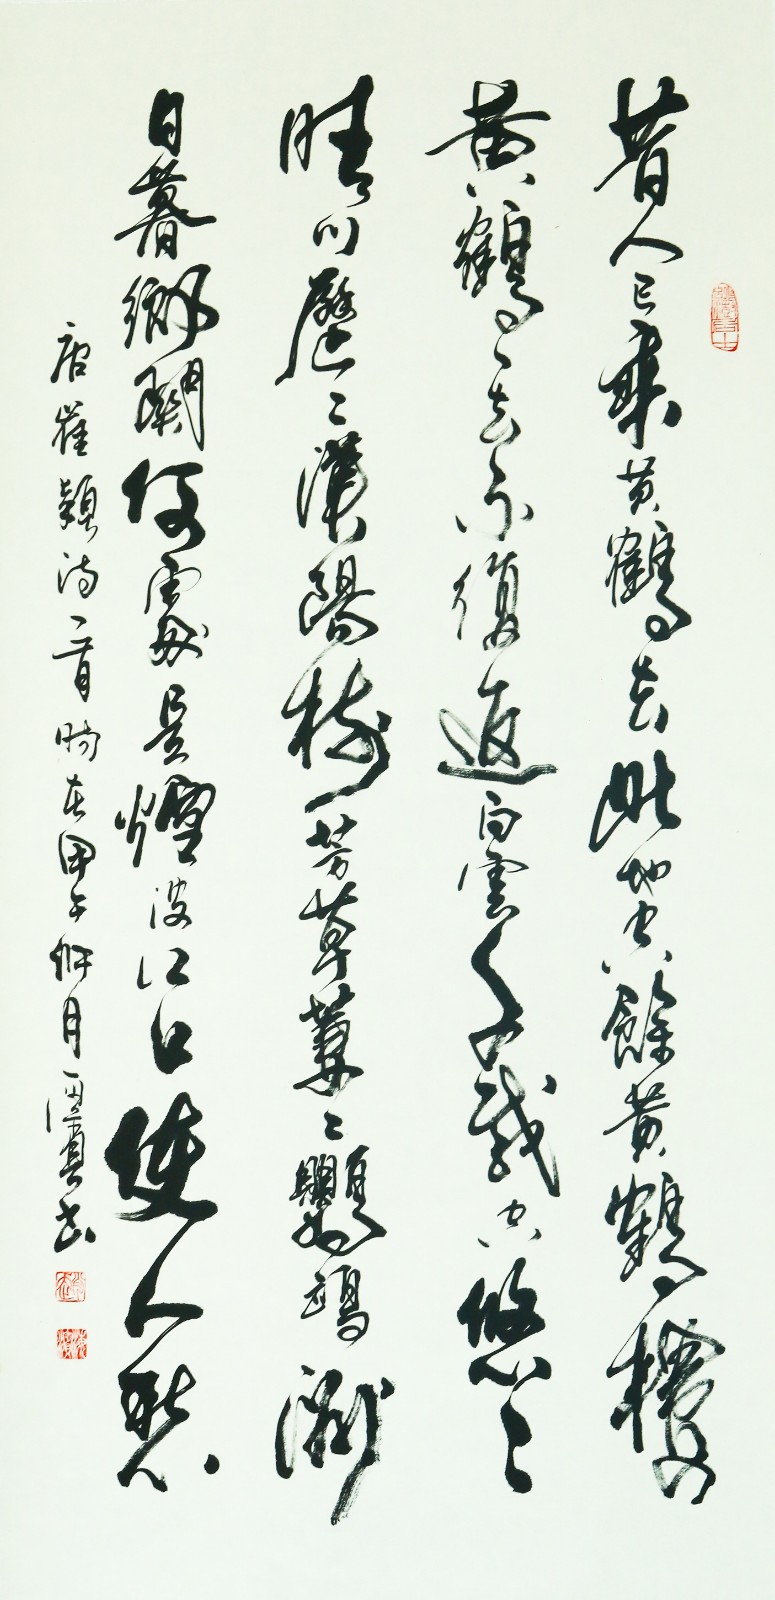 昔人已乘黄鶴去此地空餘黄鶴樓
黄鶴一去不復返白雲千載空悠々
晴川歷々漢陽樹芳草萋々鸚鵡洲
日暮鄉關何處是煙波江口使人愁
唐崔顥詩一首時在甲午年月書